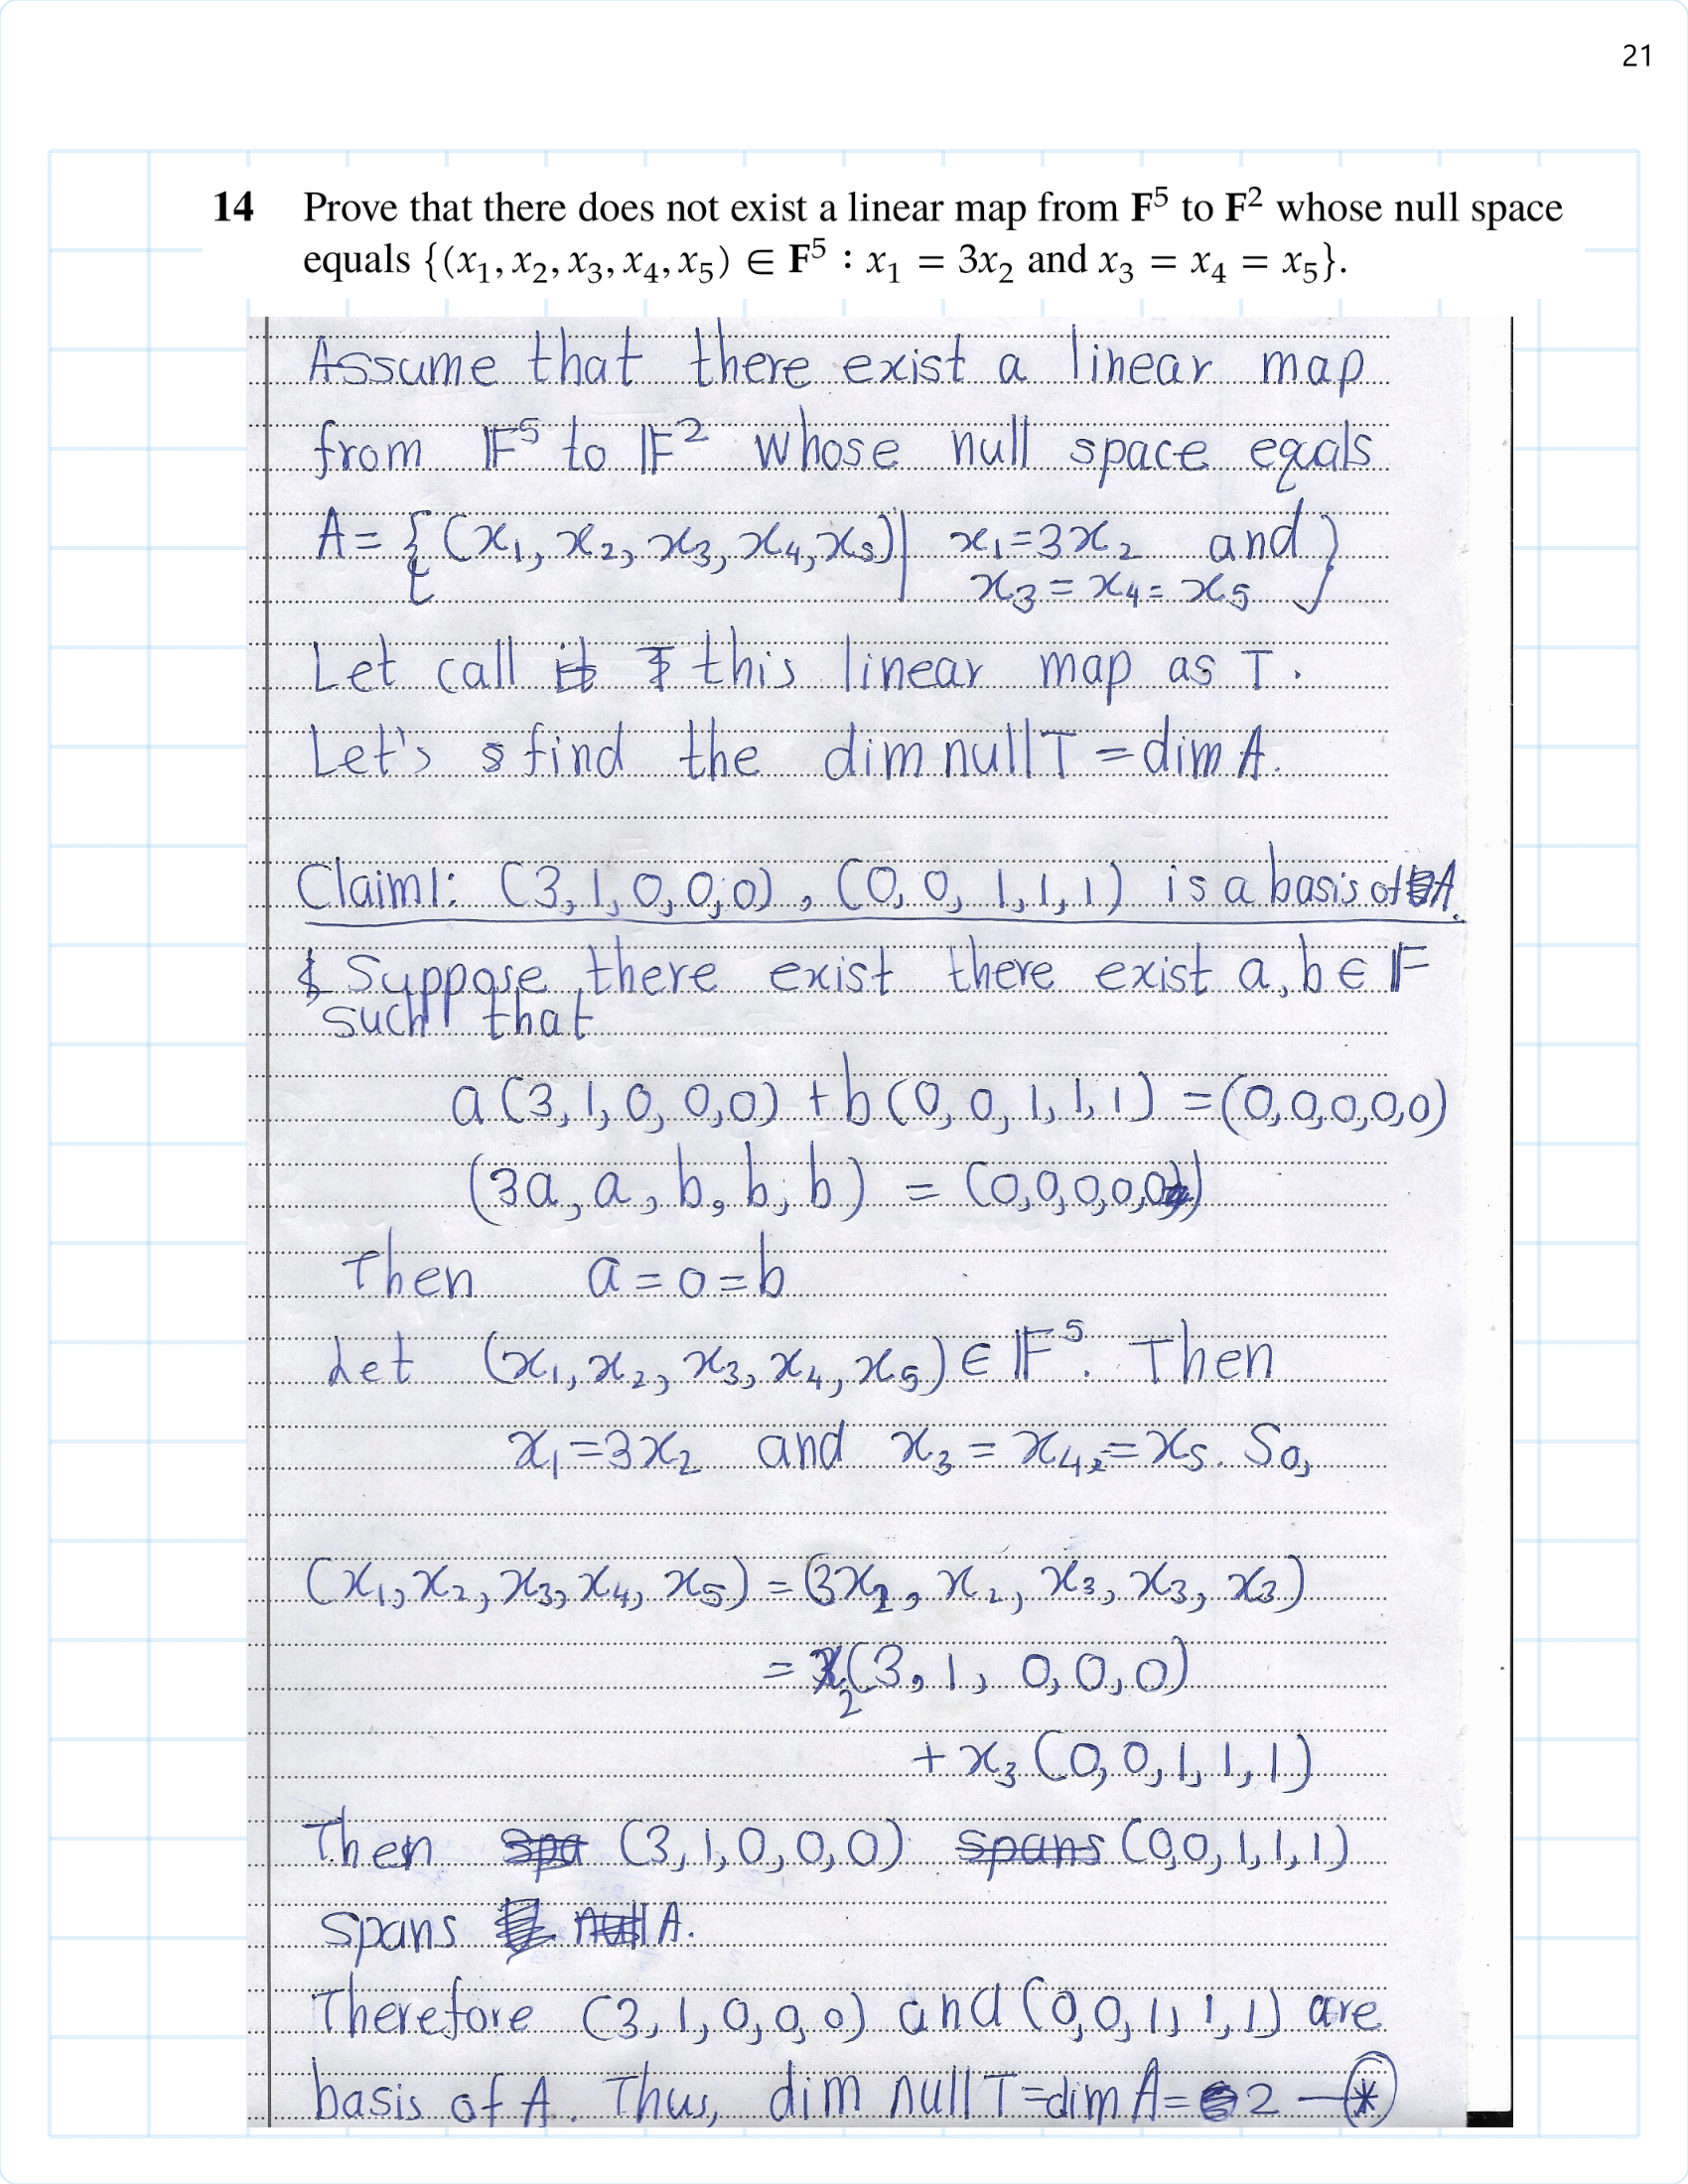 21
14 Prove that there does not exist a linear map from F⁵ to F² whose null space
equals {(x₁, x₂, x₃, x₄, x₅) ∈ F⁵ : x₁ = 3x₂ and x₃ = x₄ = x₅}.
Assume that there exist a linear map
from 𝔽⁵ to 𝔽² whose null space equals
A = {(x₁, x₂, x₃, x₄, x₅) | x₁ = 3x₂ and
x₃ = x₄ = x₅}
Let call this linear map as T.
Let's find the dim null T = dim A.
Claim1: (3, 1, 0, 0, 0), (0, 0, 1, 1, 1) is a basis of A.
Suppose there exist there exist a, b ∈ 𝔽
such that
a(3, 1, 0, 0, 0) + b(0, 0, 1, 1, 1) = (0, 0, 0, 0, 0)
(3a, a, b, b, b) = (0, 0, 0, 0, 0)
Then a = 0 = b
Let (x₁, x₂, x₃, x₄, x₅) ∈ 𝔽⁵. Then
x₁ = 3x₂ and x₃ = x₄ = x₅. So,
(x₁, x₂, x₃, x₄, x₅) = (3x₂, x₂, x₃, x₃, x₃)
= x₂(3, 1, 0, 0, 0)
+ x₃(0, 0, 1, 1, 1)
Then (3, 1, 0, 0, 0) (0, 0, 1, 1, 1)
spans A.
Therefore (3, 1, 0, 0, 0) and (0, 0, 1, 1, 1) are
basis of A. Thus, dim null T = dim A = 2 — (*)